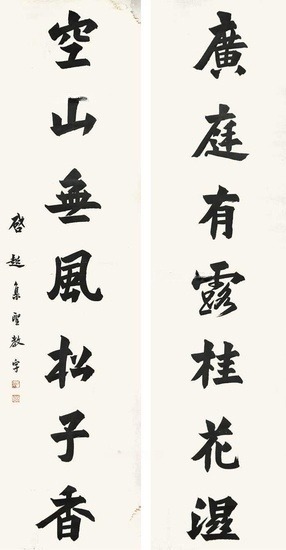 廣庭有露桂花濕
空山無風松子香
啓超集聖教字